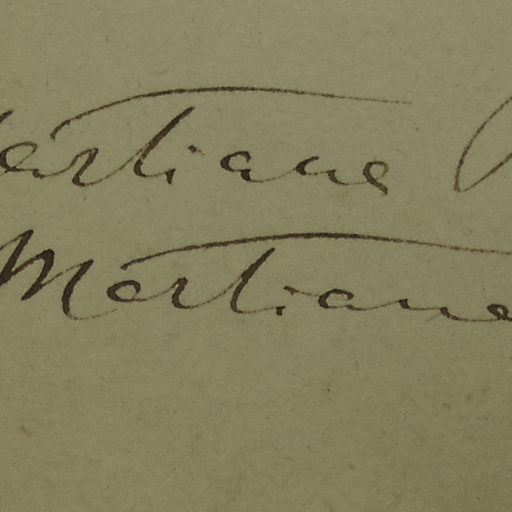 Martiana
Martiana